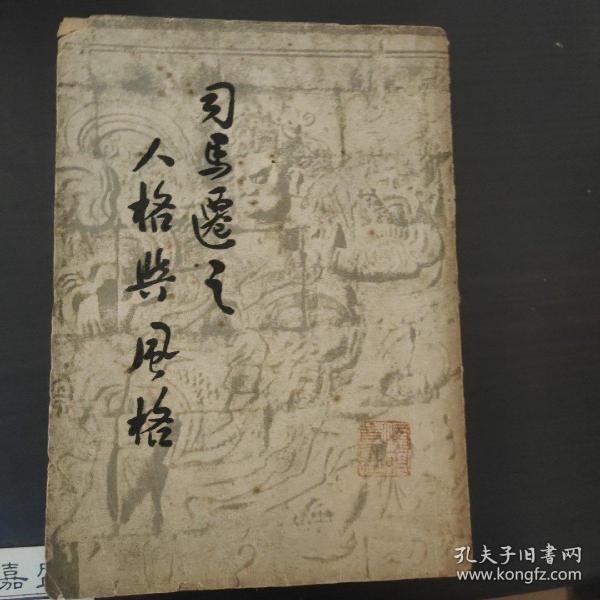 司馬遷之
人格與風格
嘉
孔夫子旧书网
www.kongfz.com